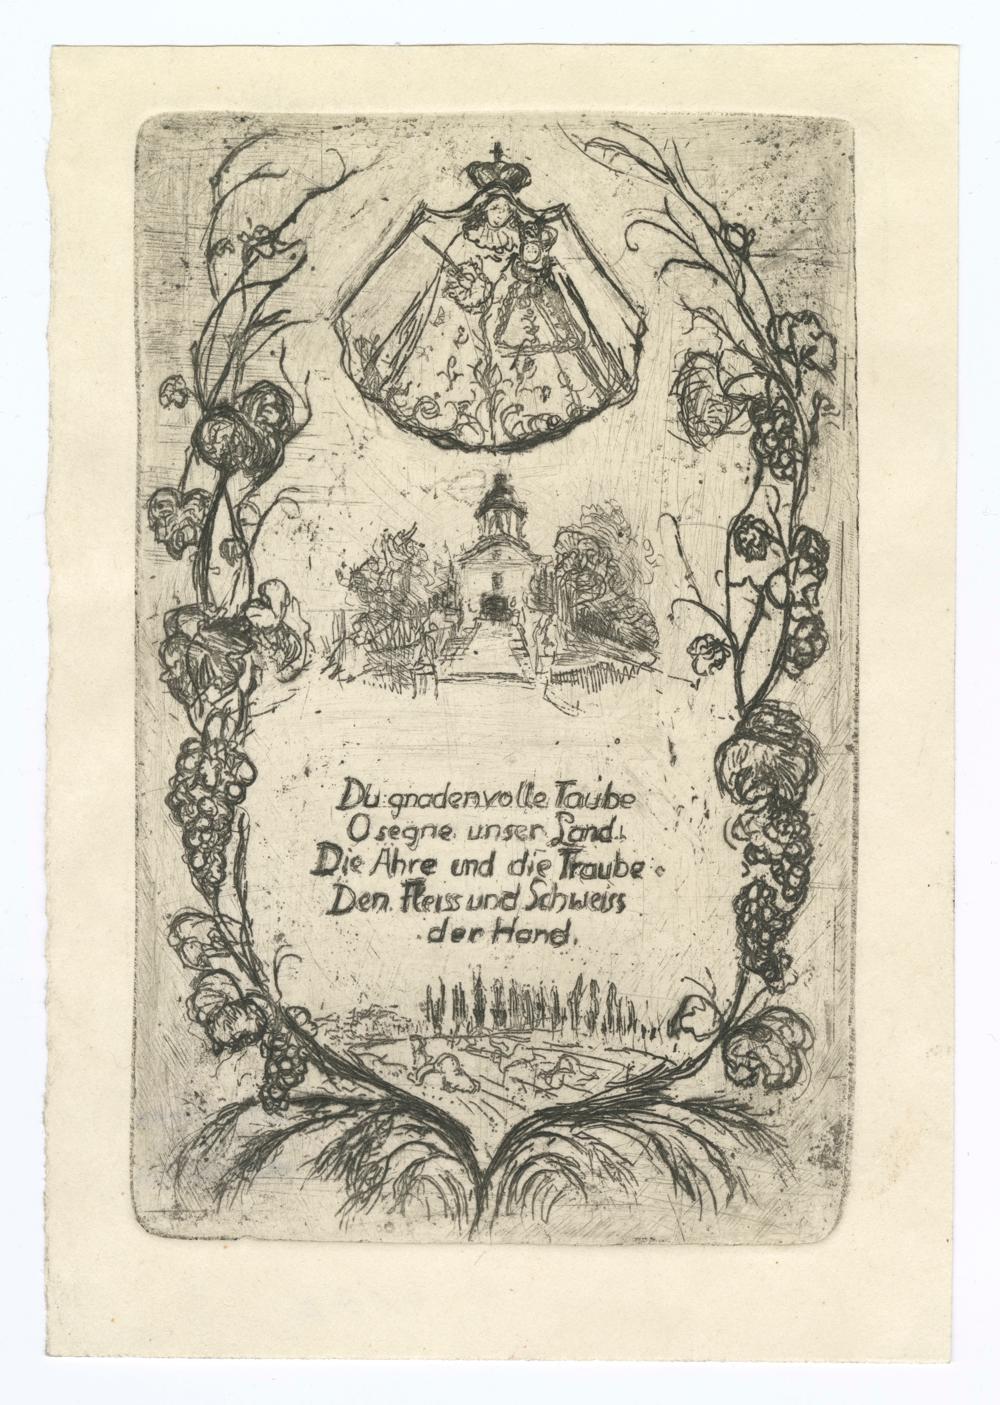 Du gnadenvolle Taube
O segne unser Land.
Die Ahre und die Traube.
Den Fleiss und Schweiss
der Hand.